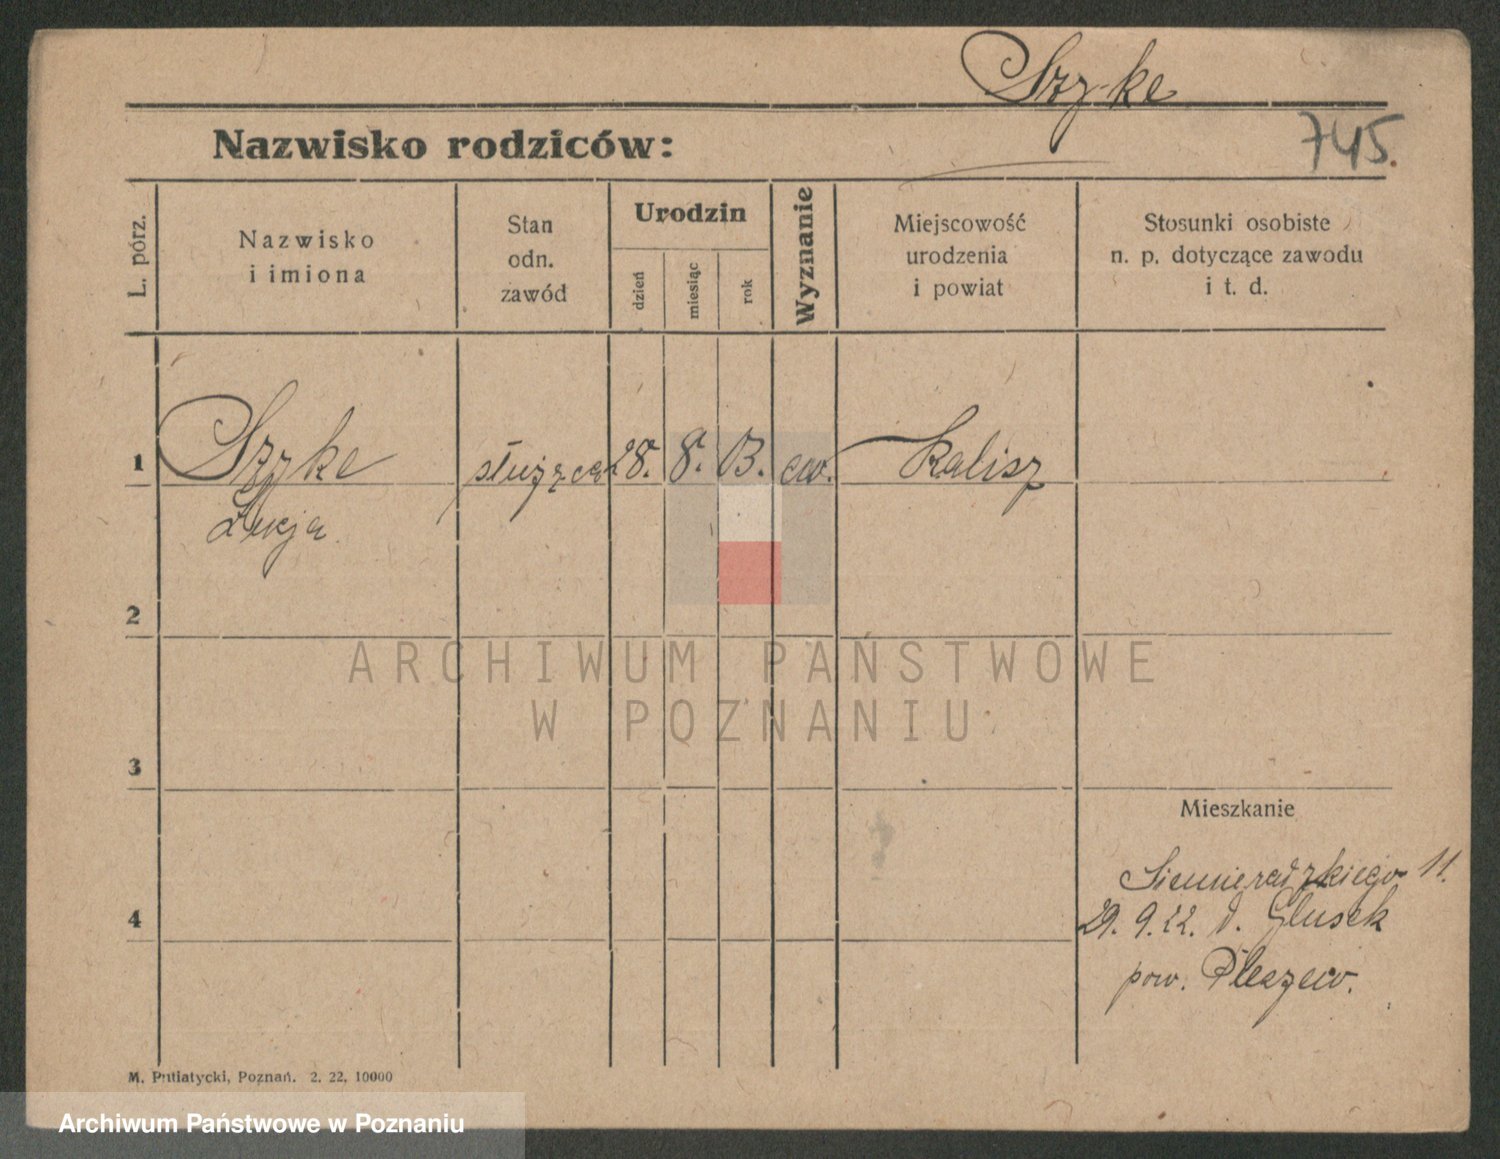 Szyke
Nazwisko rodziców:
745.
L. pórz.
Nazwisko
i imiona
Stan
odn.
zawód
Urodzin
dzień
miesiąc
rok
Wyznanie
Miejscowość
urodzenia
i powiat
Stosunki osobiste
n. p. dotyczące zawodu
i t. d.
1
Szyke
Łucja
służąca
28.
8.
03.
ew.
Kalisz
2
ARCHIWUM PAŃSTWOWE
W POZNANIU
3
Mieszkanie
Siemieradzkiego 11.
29. 9. 22. d. Głusek
pow. Pleszew.
4
M. Putiatycki, Poznań. 2. 22. 10000
Archiwum Państwowe w Poznaniu